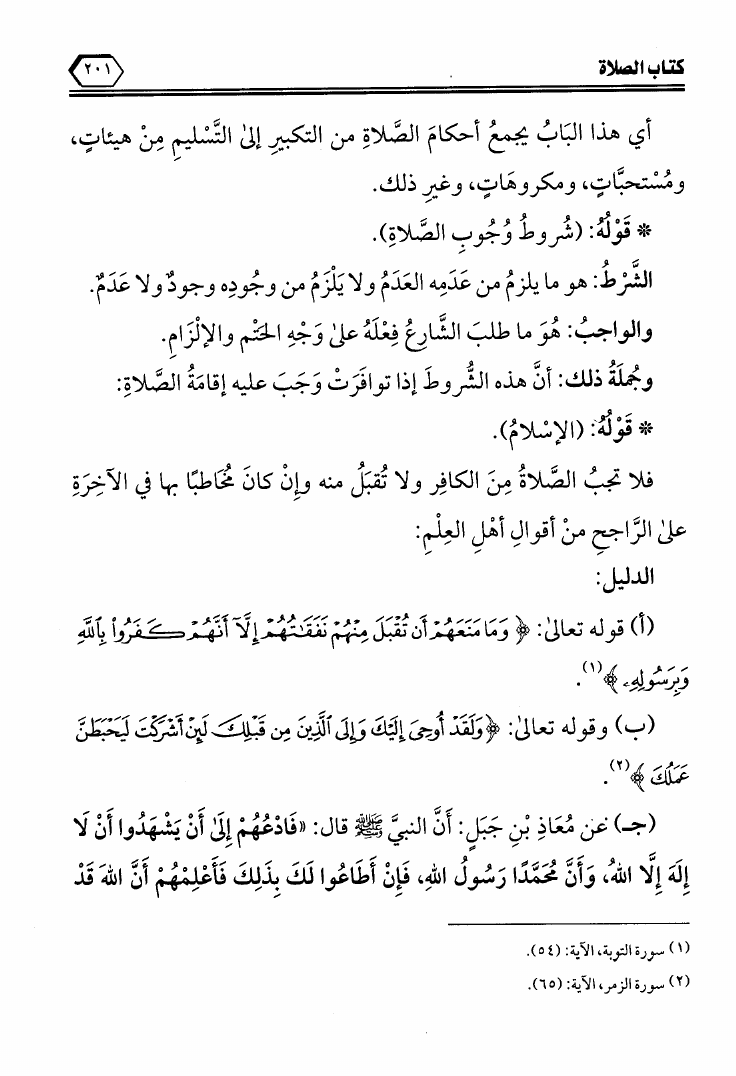 كتاب الصلاة
٢٠١
أي هذا البَابُ يجمعُ أحكامَ الصَّلاةِ من التكبيرِ إلىٰ التَّسْليمِ مِنْ هيئاتٍ،
ومُسْتحبَّاتٍ، ومكروهَاتٍ، وغيرِ ذلك.
* قَوْلُهُ: (شُروطُ وُجُوبِ الصَّلاةِ).
الشَّرْطُ: هو ما يلزمُ من عَدَمِه العَدَمُ ولا يَلْزَمُ من وجُودِه وجودٌ ولا عَدَمٌ.
والواجبُ: هُوَ ما طلبَ الشَّارعُ فِعْلَهُ علىٰ وَجْهِ الحَتْمِ والإلْزَامِ.
وجُملَةُ ذلك: أنَّ هذه الشُّروطَ إذا توافَرَتْ وَجَبَ عليه إقامَةُ الصَّلاةِ:
* قَوْلُهُ: (الإسْلامُ).
فلا تجبُ الصَّلاةُ مِنَ الكافِرِ ولا تُقبَلُ منه وإنْ كانَ مُخَاطبًا بها في الآخِرَةِ
علىٰ الرَّاجحِ منْ أقوالِ أهْلِ العِلْمِ:
الدليل:
(أ) قوله تعالىٰ: ﴿وَمَا مَنَعَهُمْ أَن تُقْبَلَ مِنْهُمْ نَفَقَٰتُهُمْ إِلَّآ أَنَّهُمْ كَفَرُوا۟ بِٱللَّهِ
وَبِرَسُولِهِۦ﴾(١).
(ب) وقوله تعالىٰ: ﴿وَلَقَدْ أُوحِىَ إِلَيْكَ وَإِلَى ٱلَّذِينَ مِن قَبْلِكَ لَئِنْ أَشْرَكْتَ لَيَحْبَطَنَّ
عَمَلُكَ﴾(٢).
(جـ) عن مُعَاذِ بْنِ جَبَلٍ: أنَّ النبيَّ ﷺ قال: «فَادْعُهُمْ إِلَىٰ أَنْ يَشْهَدُوا أَنْ لَا
إِلَهَ إِلَّا اللهُ، وَأَنَّ مُحَمَّدًا رَسُولُ اللهِ، فَإِنْ أَطَاعُوا لَكَ بِذَلِكَ فَأَعْلِمْهُمْ أَنَّ اللهَ قَدْ
(١) سورة التوبة، الآية: (٥٤).
(٢) سورة الزمر، الآية: (٦٥).